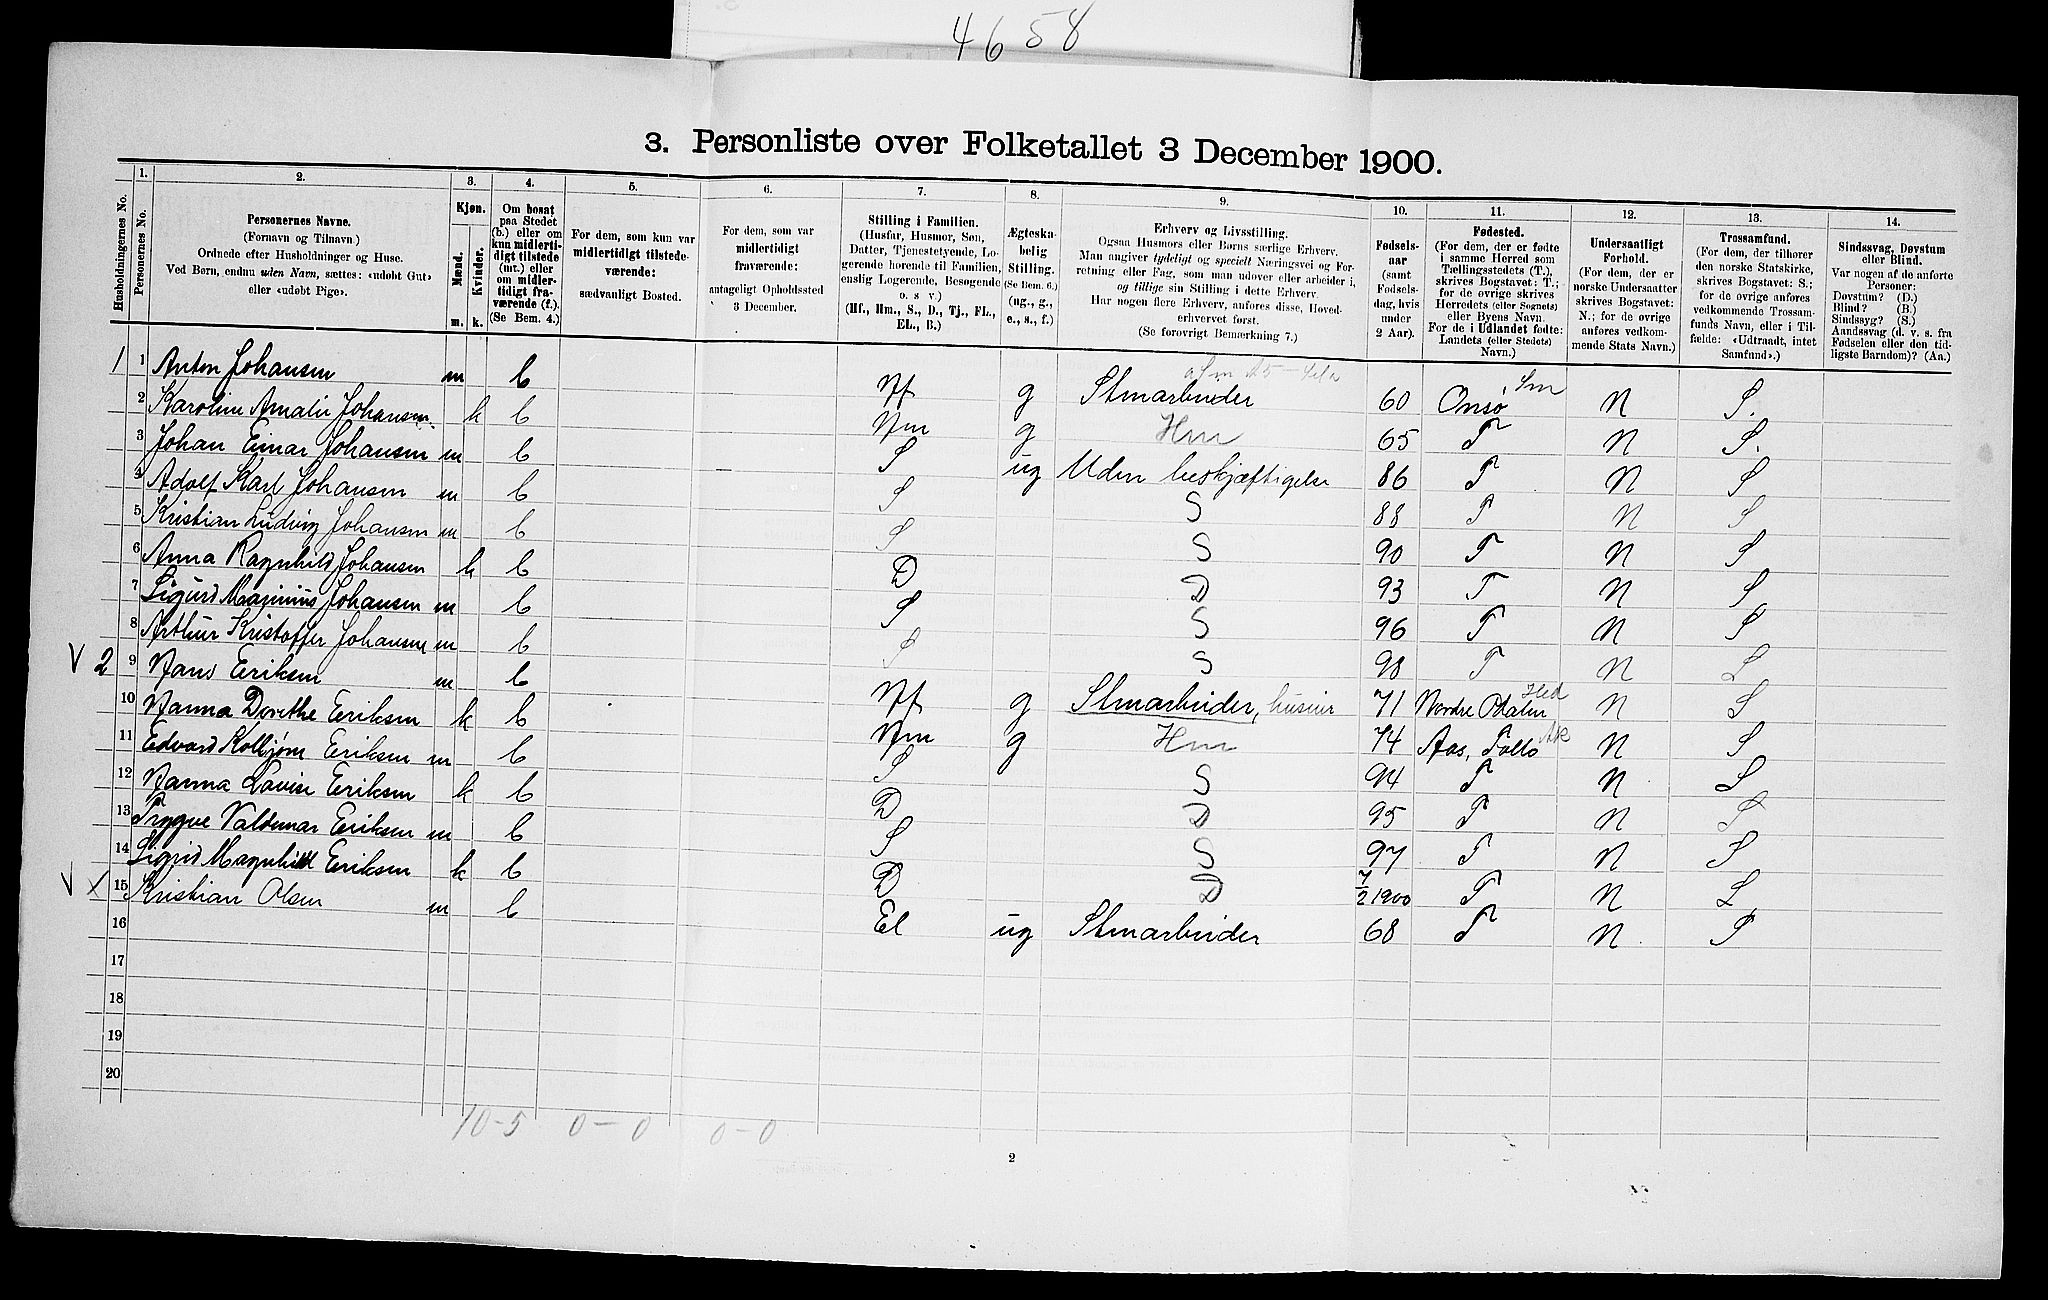 4658
3. Personliste over Folketallet 3 December 1900.
Husholdningernes No.
1.
Personernes No.
2.
Personernes Navne.
(Fornavn og Tilnavn.)
Ordnede efter Husholdninger og Huse.
Ved Børn, endnu uden Navn, sættes: «udøbt Gut»
eller «udøbt Pige».
3.
Kjøn.
Mænd.
Kvinder.
m. k.
4.
Om bosat
paa Stedet
(b.) eller om
kun midlerti-
digt tilstede
(mt.) eller
om midler-
tidigt fra-
værende (f.).
(Se Bem. 4.)
5.
For dem, som kun var
midlertidigt tilstede-
værende:
sædvanligt Bosted.
6.
For dem, som var
midlertidigt
fraværende:
antageligt Opholdssted
3 December.
7.
Stilling i Familien.
(Husfar, Husmor, Søn,
Datter, Tjenestetyende, Lo-
gerende hørende til Familien,
enslig Logerende, Besøgende
o. s. v.)
(Hf., Hm., S., D., Tj., FL.,
EL., B.)
8.
Ægteska-
belig
Stilling.
(Se Bem. 6.)
(ug., g.,
e., s., f.)
9.
Erhverv og Livsstilling.
Ogsaa Husmors eller Børns særlige Erhverv.
Man angiver tydeligt og specielt Næringsvei og For-
retning eller Fag, som man udover eller arbeider i,
og tillige sin Stilling i dette Erhverv.
Har nogen flere Erhverv, anføres disse, Hoved-
erhvervet først.
(Se forøvrigt Bemærkning 7.)
10.
Fødsels-
aar
(samt
Fødsels-
dag, hvis
under
2 Aar).
11.
Fødested.
(For dem, der er fødte
i samme Herred som
Tællingsstedets (T.),
skrives Bogstavet: T.;
for de øvrige skrives
Herredets (eller Sognets)
eller Byens Navn.
For de i Udlandet fødte:
Landets (eller Stedets)
Navn.)
12.
Undersaatligt
Forhold.
(For dem, der er
norske Undersaatter
skrives Bogstavet:
N.; for de øvrige
anføres vedkom-
mende Stats Navn.)
13.
Trossamfund.
(For dem, der tilhører
den norske Statskirke,
skrives Bogstavet: S.;
for de øvrige anføres
vedkommende Trossam-
funds Navn, eller i Til-
fælde: «Udtraadt, intet
Samfund».)
14.
Sindssvag, Døvstum
eller Blind.
Var nogen af de anførte
Personer:
Døvstum? (D.)
Blind? (B.)
Sindssyg? (S.)
Aandssvag (d. v. s. fra
Fødselen eller den tid-
ligste Barndom)? (Aa.)
1 1 Anton Johansen m b Hf g Stenarbeider 60 Onsø Sm N S.
2 Karoline Amalie Johansen k b Hm g Hm 65 T N S.
3 Johan Einar Johansen m b S ug Uden beskjæftigelse 86 T N S
4 Adolf Karl Johansen m b S S 88 T N S
5 Kristian Ludvig Johansen m b S S 90 T N S
6 Anna Ragnhild Johansen k b D D 93 T N S
7 Sigurd Magnius Johansen m b S S 96 T N S
8 Arthur Kristoffer Johansen m b S S 98 T N S
V 2 9 Hans Eriksen m b Hf g Stenarbeider, huseier 71 Nordre Odalen Hed N S
10 Hanna Dorethe Eriksen k b Hm g Hm 74 Aas, Follo Ak N S
11 Edvard Kolbjørn Eriksen m b S S 94 T N S
12 Hanna Lovise Eriksen k b D D 95 T N S
13 Trygve Valdemar Eriksen m b S S 97 T N S
14 Sigrid Magnhild Eriksen k b D D 7/2 1900 T N S
V x 15 Kristian Olsen m b El ug Stenarbeider 68 T N S
16
17
18
19
20
10-5 0-0 0-0
2